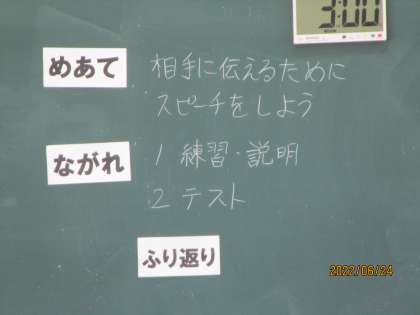 3:00
めあて 相手に伝えるために
スピーチをしよう
ながれ 1 練習・説明
2 テスト
ふり返り
2022/06/24